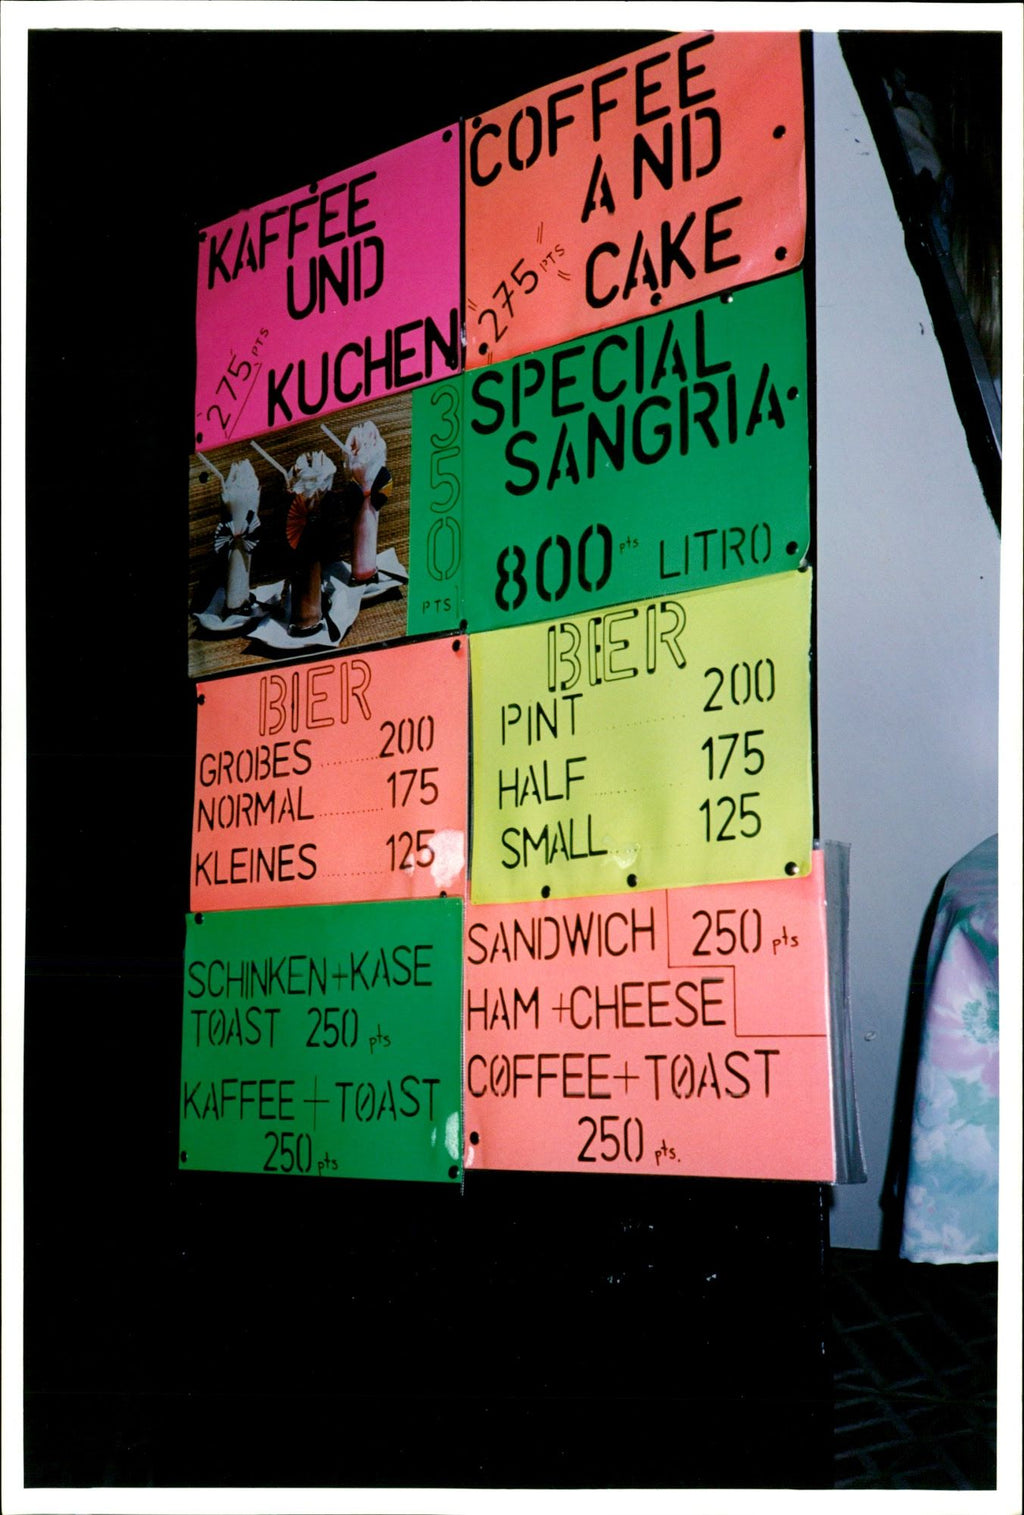 KAFFEE
UND
KUCHEN
"275" PTS
COFFEE
AND
CAKE
"275" PTS
350
PTS
SPECIAL
SANGRIA
800 pts LITRO
BIER
GROBES ........... 200
NORMAL ........... 175
KLEINES ........... 125
BIER
PINT ........... 200
HALF ........... 175
SMALL ........... 125
SCHINKEN+KASE
TOAST 250 pts
KAFFEE+TOAST
250 pts
SANDWICH 250 pts
HAM +CHEESE
COFFEE+TOAST
250 pts.